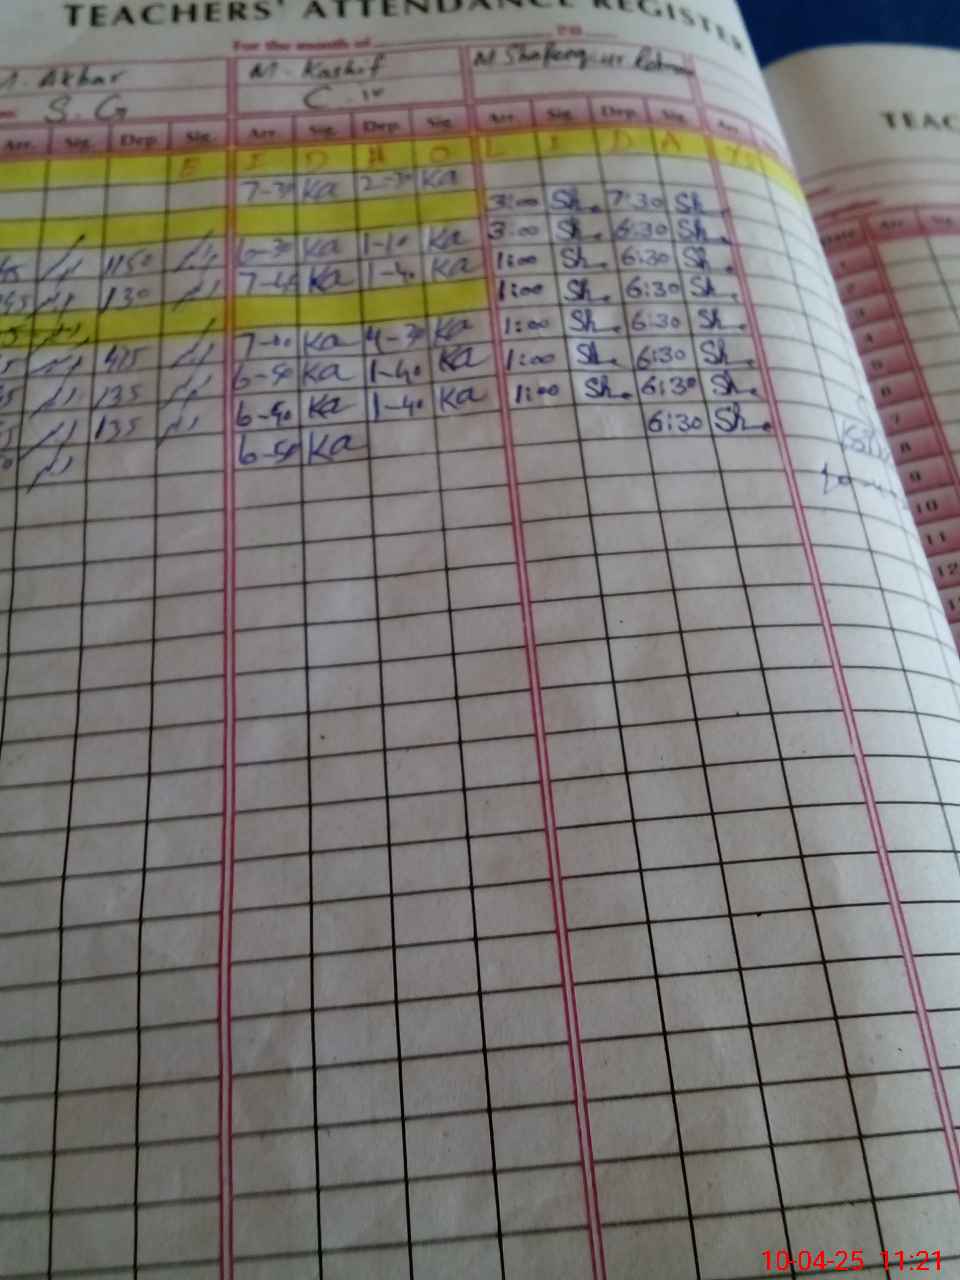 TEACHERS' ATTENDANCE REGISTER
For the month of
Akbar M. Kashif M Shafeeq ur Rehman
S.G C.iv
Arr. Sig. Dep. Sig. Arr. Sig. Dep. Sig. Arr. Sig. Dep. Sig. Arr.
E I D H O L I D A YS
7-30 Ka 2-30 Ka
3:00 Sh. 7:30 Sh.
1150 6-30 Ka 1-10 Ka 3:00 Sh. 6:30 Sh.
130 7-40 Ka 1-40 Ka 1:00 Sh. 6:30 Sh.
1:00 Sh. 6:30 Sh.
415 Ka 4-30 Ka 1:00 Sh. 6:30 Sh.
135 6-50 Ka 1-40 Ka 1:00 Sh. 6:30 Sh.
135 6-40 Ka 1-40 Ka 1:00 Sh. 6:30 Sh.
6-50 Ka 6:30 Sh.
TEAC
Date Arr. Sig.
1
2
3
4
5
6
7
8
9
10
11
12
10-04-25 11:21